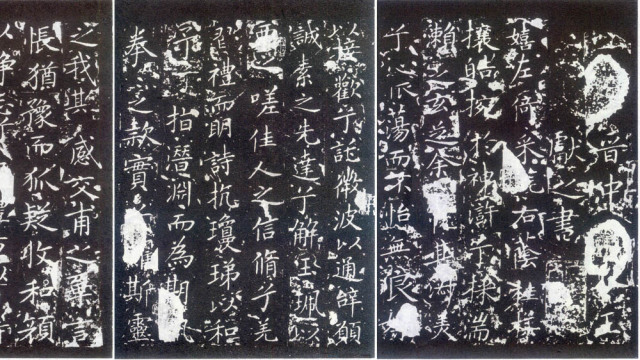 晉中王
獻之書
嬉左倚采旄右蔭桂旗
攘皓捥於神滸兮採湍
瀨之玄芝余其淑美
兮心振蕩而不怡無良媒
以接歡兮託微波以通辭願
誠素之先達兮解玉珮以
要之嗟佳人之信脩兮羌
習禮而明詩抗瓊珶以和
予兮指潛淵而為期執
拳之款實斯靈
之我欺感交甫之棄言
悵猶豫而狐疑收和顏
以靜志兮